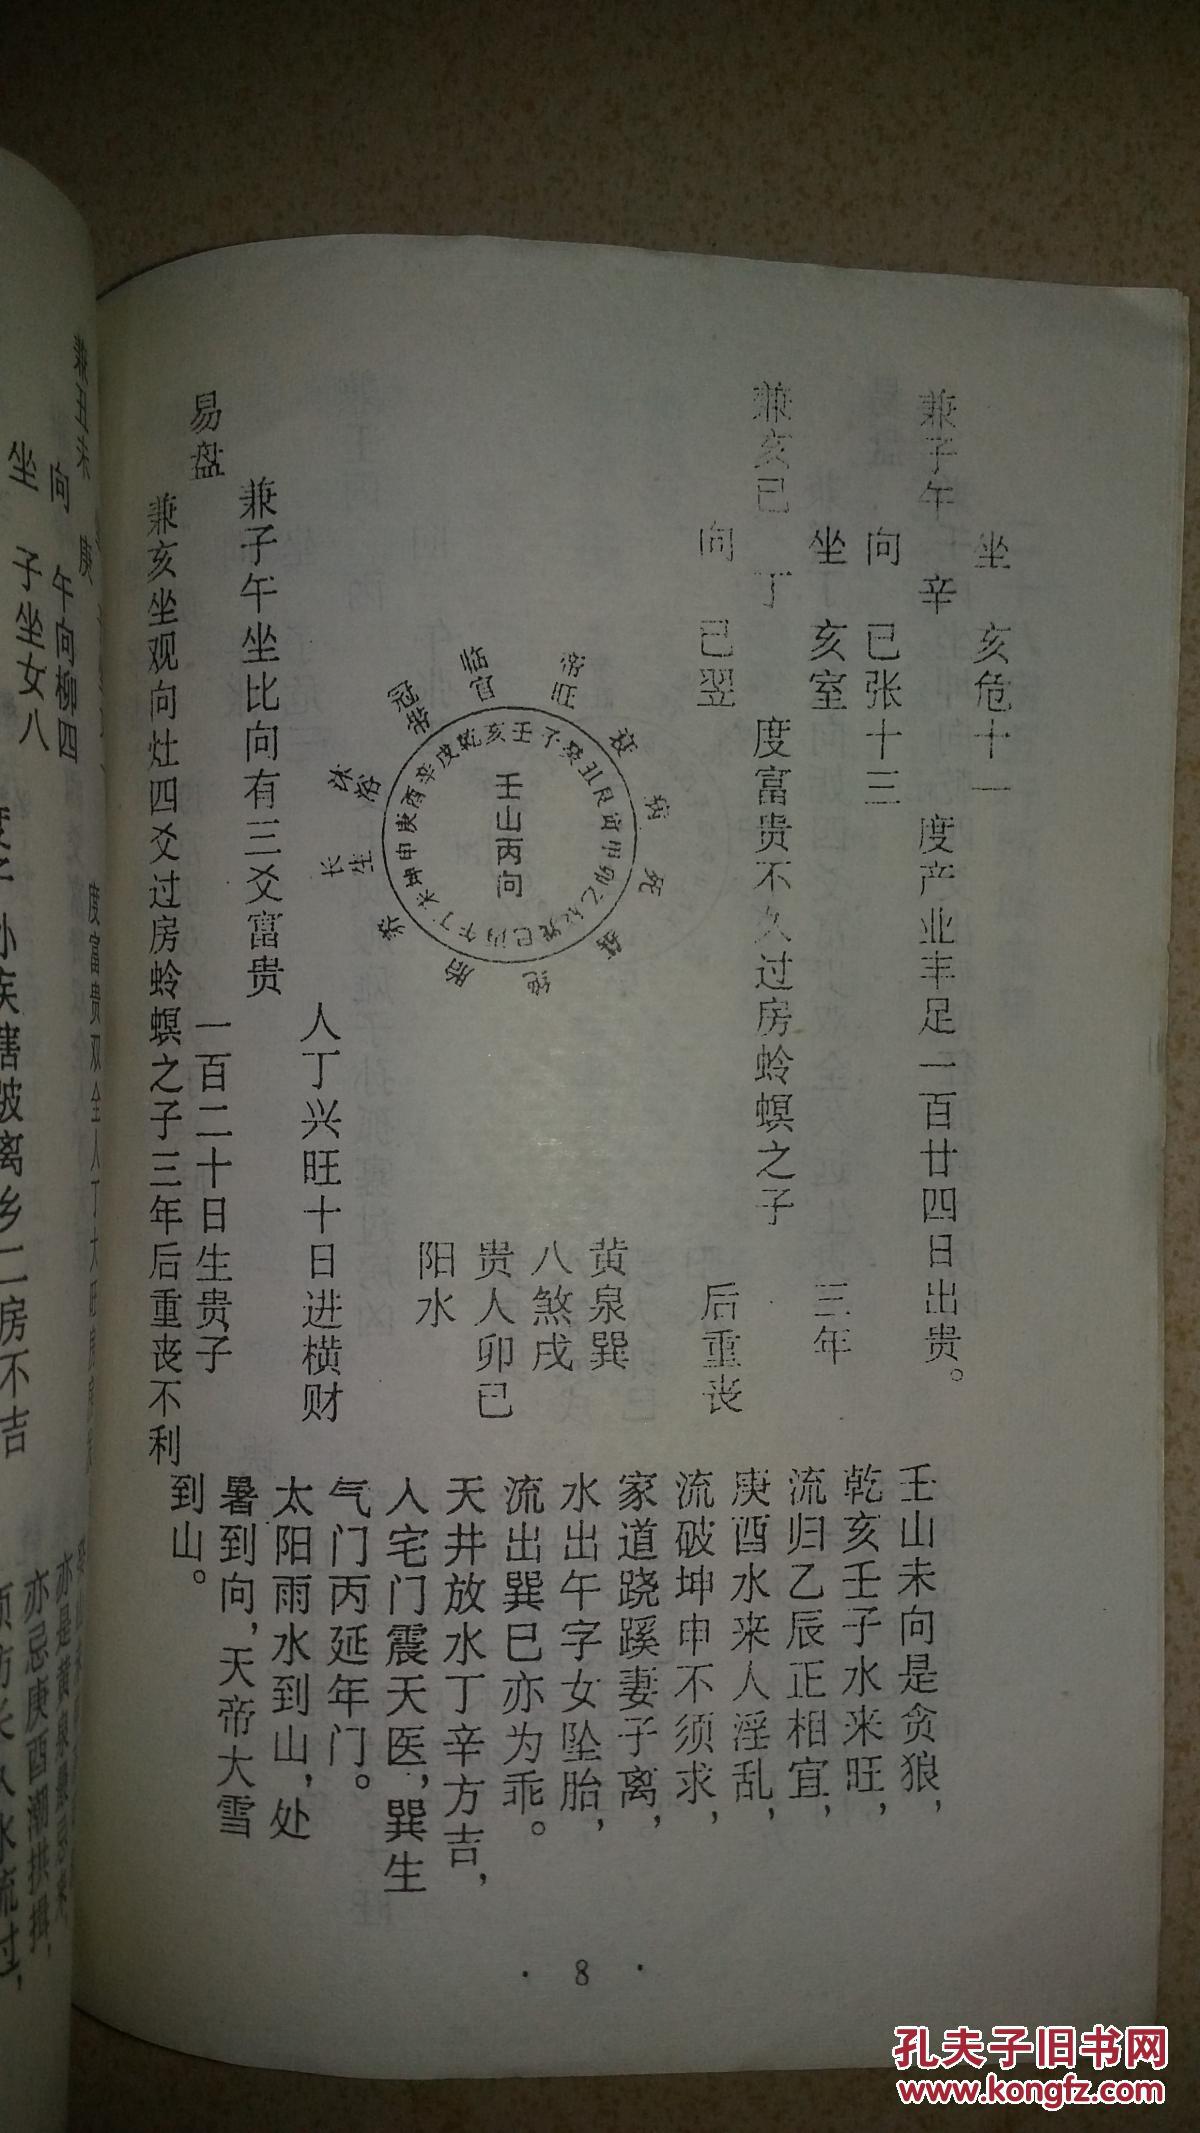 坐 亥危十一
兼子午 辛 度产业丰足一百廿四日出贵。
向 已张十三
坐 亥室 三年
兼亥已 丁 度富贵不久过房蛉螟之子
向 已翌 后重丧
黄泉巽
八煞戌
贵人卯已
阳水
壬山丙向
壬子癸丑艮寅甲卯乙辰巽巳丙午丁未坤申庚酉辛戌乾亥
临官
冠带
沐浴
长生
养
胎
绝
死
病
人丁兴旺十日进横财
兼子午坐比向有三爻富贵
易盘
一百二十日生贵子
兼亥坐观向灶四爻过房蛉螟之子三年后重丧不利
壬山未向是贪狼，
乾亥壬子水来旺，
流归乙辰正相宜，
庚酉水来人淫乱，
流破坤申不须求，
家道跷蹊妻子离，
水出午字女坠胎，
流出巽巳亦为乖。
天井放水丁辛方吉，
人宅门震天医，巽生
气门丙延年门。
太阳雨水到山，处
暑到向，天帝大雪
到山。
·8·
兼丑未 庚
向 午向柳四
坐 子坐女八
度富贵双全人丁大旺
亦忌庚酉潮拱揖，
孔夫子旧书网
www.kongfz.com